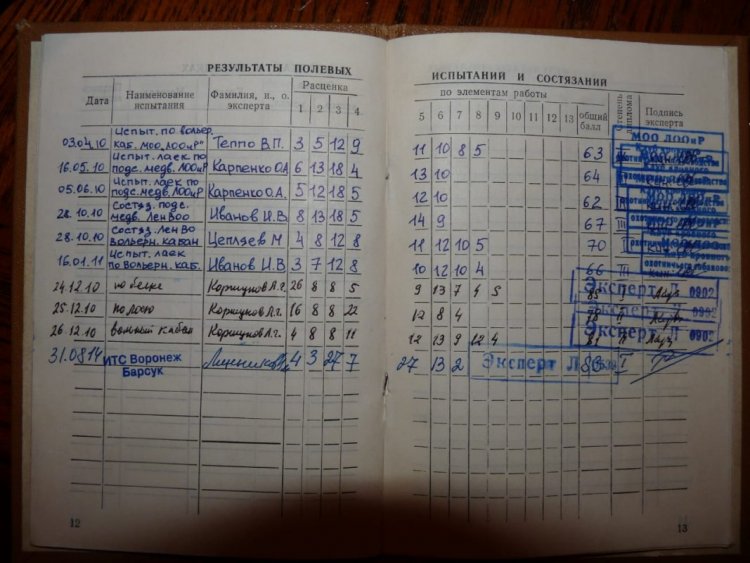 РЕЗУЛЬТАТЫ ПОЛЕВЫХ ИСПЫТАНИЙ И СОСТЯЗАНИЙ
Дата Наименование испытания Фамилия, и., о. эксперта Расценка по элементам работы общий балл Степень диплома Подпись эксперта
1 2 3 4 5 6 7 8 9 10 11 12 13
Испыт. по вольер.
03.04.10 каб. МОО „ЛООиР" Теппо В.П. 3 5 12 9 11 10 8 5 63
Испыт. лаек по
16.05.10 подс. медв. ЛООиР Карпенко О.А. 6 13 18 4 13 10 64
Испыт. лаек по
05.06.10 подс. медв. ЛООиР Карпенко О.А. 5 12 18 5 12 10 62
Состяз. подс.
28.10.10 медв. ЛенВоо Иванов И.В. 8 13 18 5 14 9 67
Состяз. ЛенВо
28.10.10 вольерн. кабан Цепляев М 4 8 12 8 11 12 10 5 70
Испыт. лаек
16.01.11 по вольерн. каб. Иванов И.В 3 7 12 8 10 12 10 4 66 III
24.12.10 по белке Коршунов А.г. 26 8 8 5 9 13 7 4 5 85
25.12.10 по лосю Коршунов А.г. 16 8 8 22 12 8 4 78 II
26.12.10 вольный кабан Коршунов А.г. 4 8 8 11 12 13 9 12 4 81 II
31.08.14 ИТС Воронеж 4 3 27 7 27 13 2 I
Барсук
МОО ЛООиР
Эксперт Л 0902
Эксперт Л
Эксперт Л
12
13